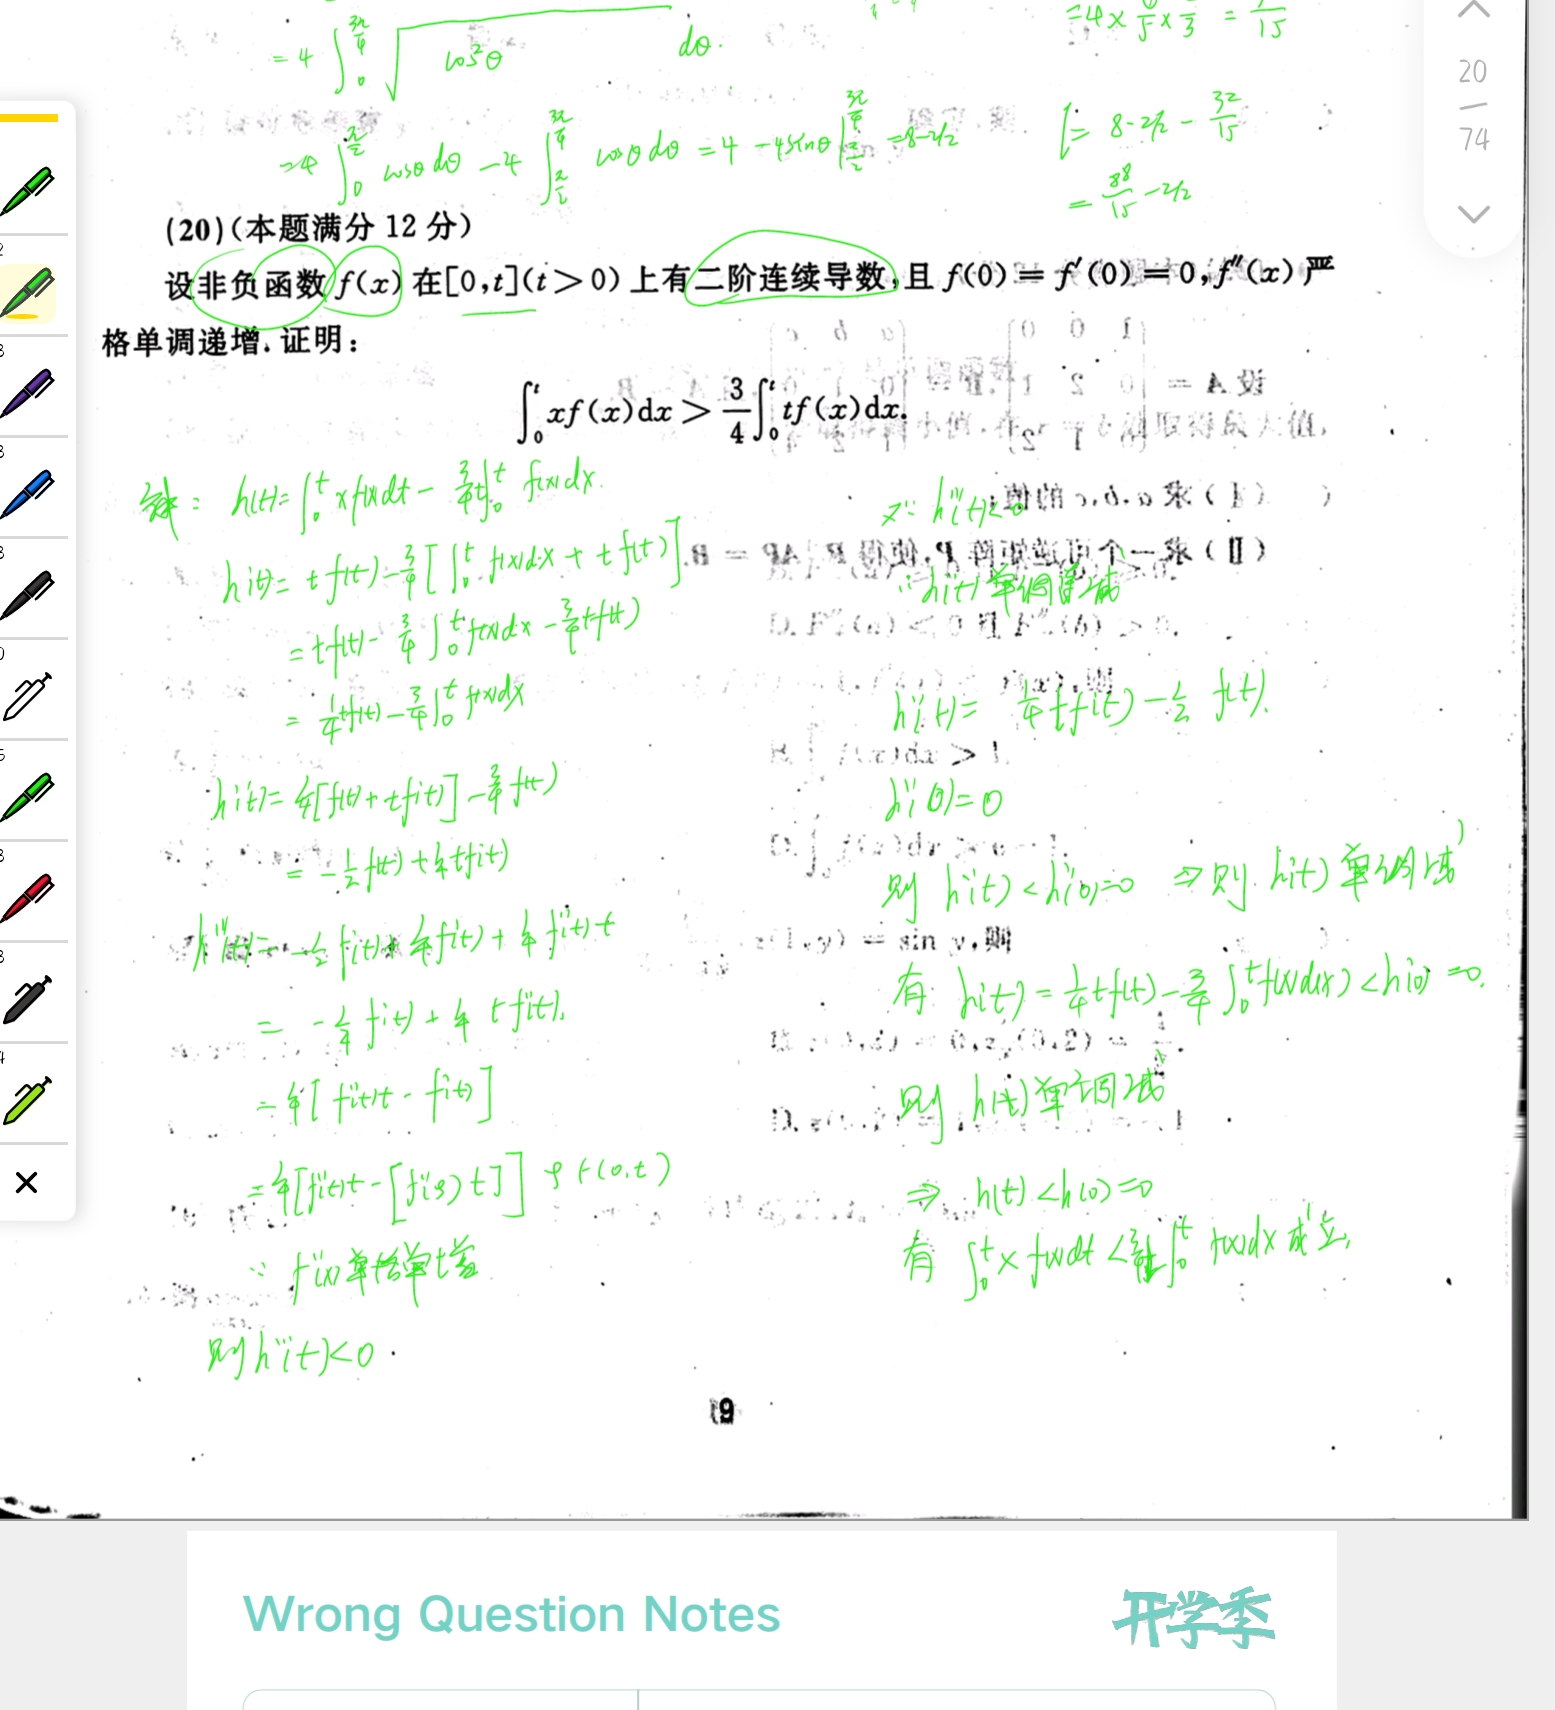 = 4 ∫₀^{3π/4} √cos²θ dθ.
=4 ∫₀^{π/2} cosθ dθ - 4 ∫_{π/2}^{3π/4} cosθ dθ = 4 - 4sinθ |_{π/2}^{3π/4} = 8-2√2
I = 8-2√2 - 32/15
= 88/15 - 2√2
20
74
(20)(本题满分 12 分)
设非负函数 f(x) 在[0,t](t>0) 上有二阶连续导数,且 f(0) = f′(0) = 0, f″(x) 严
格单调递增. 证明:
∫₀ᵗ xf(x)dx > 3/4 ∫₀ᵗ tf(x)dx.
解: h(t)= ∫₀ᵗ x f(x)dt - 3/4 t∫₀ᵗ f(x)dx.
h'(t)= t f(t) - 3/4 [∫₀ᵗ f(x)dx + t f(t)].
= tf(t) - 3/4 ∫₀ᵗ f(x)dx - 3/4 tf(t)
= 1/4 tf(t) - 3/4 ∫₀ᵗ f(x)dx
h''(t)= 1/4[f(t)+tf'(t)] - 3/4 f(t)
= -1/2 f(t) + 1/4 tf'(t)
h'''(t)= -1/2 f'(t) + 1/4 f'(t) + 1/4 f''(t) t
= -1/4 f'(t) + 1/4 t f''(t).
= 1/4[f''(t)t - f'(t)]
= 1/4[f''(t)t - [f''(ξ) t]] ξ∈(0,t)
则 h'''(t)<0
又∵ h'''(t)<0
∴ h''(t) 单调递减
h''(t)= 1/4 tf'(t) - 1/2 f(t).
h''(0)=0
则 h''(t)<h''(0)=0 ⇒则 h'(t) 单调减
有 h'(t) = 1/4 tf(t) - 3/4 ∫₀ᵗ f(x)d(x) <h'(0) =0.
则 h(t)单调减
⇒ h(t)<h(0)=0
有 ∫₀ᵗ x f(x)dt < 3/4 t∫₀ᵗ f(x)dx 成立,
9
Wrong Question Notes
开学季